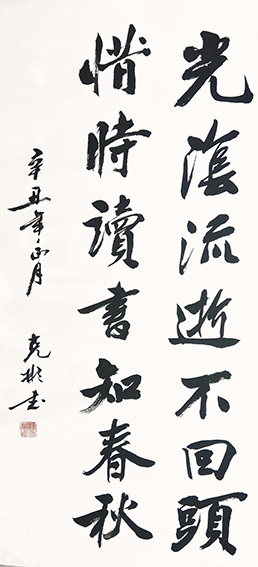 光蔭流逝不回頭
惜時讀書知春秋
辛丑年正月
克彬書